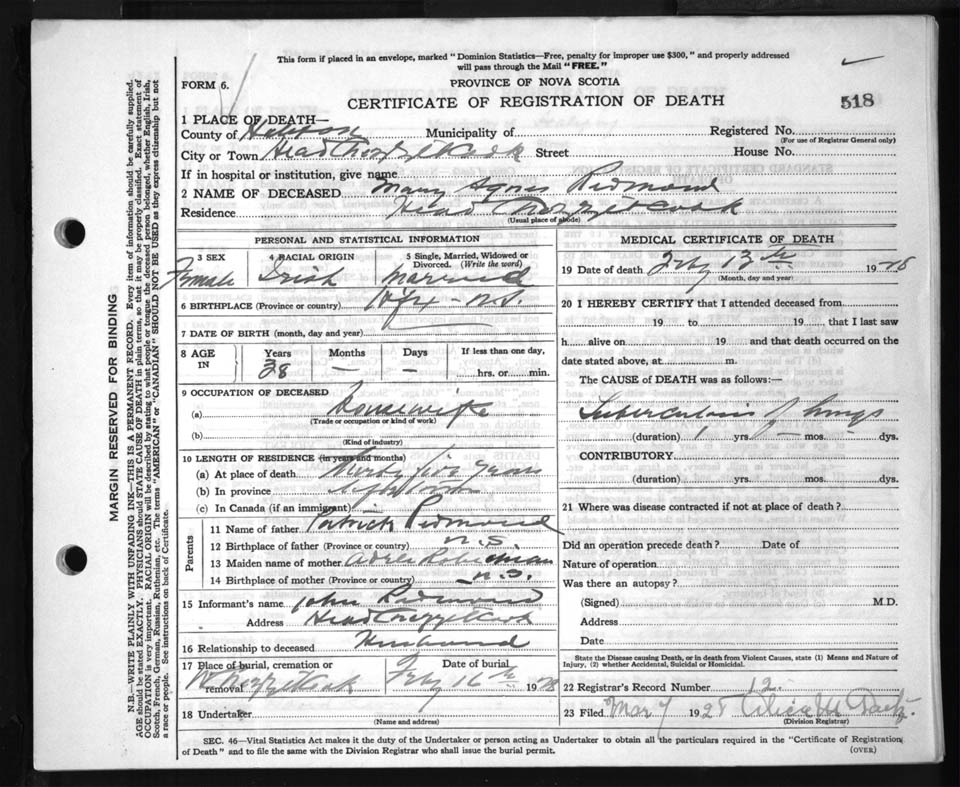 This form if placed in an envelope, marked "Dominion Statistics—Free, penalty for improper use $300," and properly addressed
will pass through the Mail "FREE."
FORM 6.
PROVINCE OF NOVA SCOTIA
CERTIFICATE OF REGISTRATION OF DEATH
518
1 PLACE OF DEATH—
County of Municipality of Registered No.
(For use of Registrar General only)
City or Town Head Street House No.
If in hospital or institution, give name
2 NAME OF DECEASED Mary Agnes Redmond
Residence Head
(Usual place of abode)
PERSONAL AND STATISTICAL INFORMATION
3 SEX Female
4 RACIAL ORIGIN Irish
5 Single, Married, Widowed or Divorced. (Write the word) Married
6 BIRTHPLACE (Province or country) Hfx - N.S.
7 DATE OF BIRTH (month, day and year)
8 AGE IN Years 38 Months — Days — If less than one day, hrs. or min.
9 OCCUPATION OF DECEASED
(a) Housewife
(Trade or occupation or kind of work)
(b)
(Kind of industry)
10 LENGTH OF RESIDENCE (in years and months)
(a) At place of death years
(b) In province
(c) In Canada (if an immigrant)
Parents
11 Name of father Patrick Redmond
12 Birthplace of father (Province or country) N.S.
13 Maiden name of mother
14 Birthplace of mother (Province or country) N.S.
15 Informant's name John Redmond
Address Head
16 Relationship to deceased Husband
17 Place of burial, cremation or removal W.
Date of burial Feby 16th 1928
18 Undertaker
(Name and address)
MEDICAL CERTIFICATE OF DEATH
19 Date of death Feby 13th 1928
(Month, day and year)
20 I HEREBY CERTIFY that I attended deceased from
19 to 19, that I last saw
h alive on 19 and that death occurred on the
date stated above, at m.
The CAUSE OF DEATH was as follows:—
Tuberculosis of lungs
(duration) 1 yrs. — mos. — dys.
CONTRIBUTORY
(duration) yrs. mos. dys.
21 Where was disease contracted if not at place of death?
Did an operation precede death? Date of
Nature of operation
Was there an autopsy?
(Signed) M.D.
Address
Date
State the Disease causing Death, or in death from Violent Causes, state (1) Means and Nature of
Injury, (2) whether Accidental, Suicidal or Homicidal.
22 Registrar's Record Number 12
23 Filed Mar 7 1928
(Division Registrar)
SEC. 46—Vital Statistics Act makes it the duty of the Undertaker or person acting as Undertaker to obtain all the particulars required in the "Certificate of Registration
of Death" and to file the same with the Division Registrar who shall issue the burial permit.
(OVER)
MARGIN RESERVED FOR BINDING
N.B.—WRITE PLAINLY WITH UNFADING INK—THIS IS A PERMANENT RECORD. Every item of information should be carefully supplied.
AGE should be stated EXACTLY. PHYSICIANS should STATE CAUSE OF DEATH in plain terms, so that it may be properly classified. Exact statement of
OCCUPATION is very important. RACIAL ORIGIN will be described by stating to what people or tongue the deceased person belonged, whether English, Irish,
Scotch, French, German, Russian, Ruthenian, etc. The terms "AMERICAN" or "CANADIAN" SHOULD NOT BE USED as they express citizenship but not
a race or people. See instructions on back of Certificate.